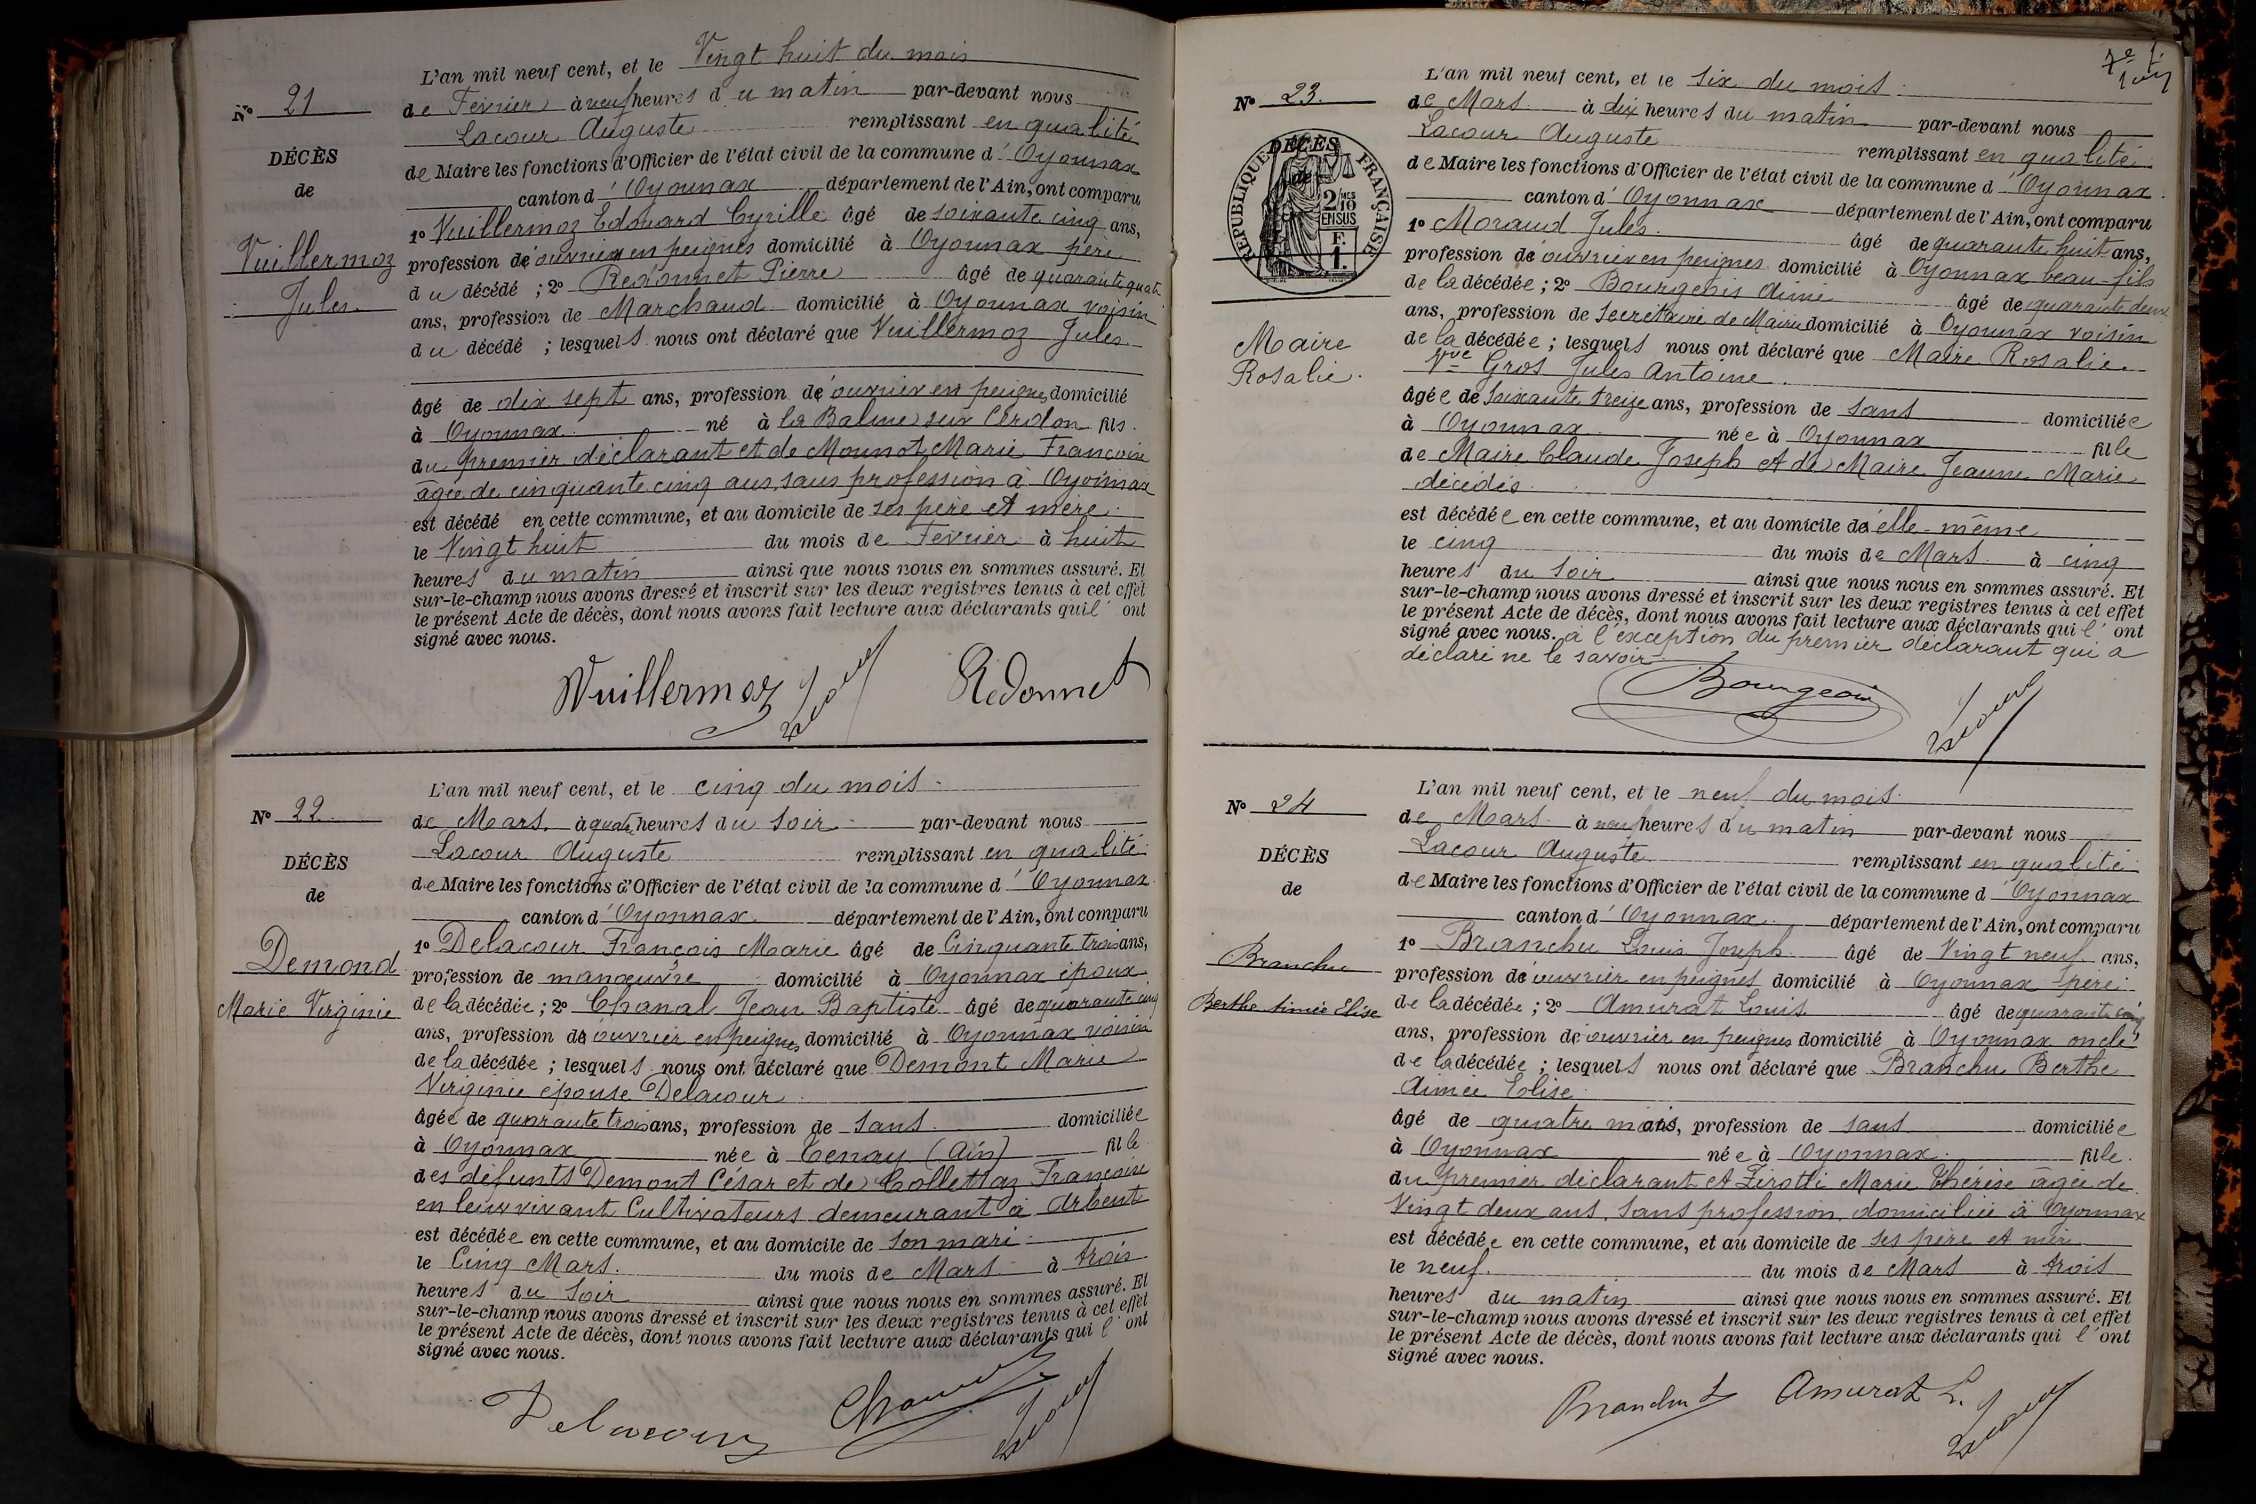 N° 21
DÉCÈS
de
Vuillermoz
Jules.
L'an mil neuf cent, et le Vingt huit du mois
de Février à neuf heures du matin par-devant nous
Lacour Auguste remplissant en qualité
de Maire les fonctions d'Officier de l'état civil de la commune d'Oyonnax
canton d'Oyonnax département de l'Ain, ont comparu
1° Vuillermoz Edouard Cyrille âgé de soixante cinq ans,
profession d'ouvrier en peignes domicilié à Oyonnax père
du décédé ; 2° Redonnet Pierre âgé de quarante quatre
ans, profession de Marchand domicilié à Oyonnax voisin
du décédé ; lesquels nous ont déclaré que Vuillermoz Jules
âgé de dix sept ans, profession d'ouvrier en peignes domicilié
à Oyonnax né à la Balme sur Cerdon fils
du premier déclarant et de Mounot Marie Françoise
âgée de cinquante cinq ans, sans profession à Oyonnax
est décédé en cette commune, et au domicile de ses père et mère
le Vingt huit du mois de Février à huit
heures du matin ainsi que nous nous en sommes assuré. Et
sur-le-champ nous avons dressé et inscrit sur les deux registres tenus à cet effet
le présent Acte de décès, dont nous avons fait lecture aux déclarants qui l'ont
signé avec nous.
Vuillermoz Lacour Redonnet
N° 22
DÉCÈS
de
Demond
Marie Virginie
L'an mil neuf cent, et le cinq du mois
de Mars à quatre heures du soir par-devant nous
Lacour Auguste remplissant en qualité
de Maire les fonctions d'Officier de l'état civil de la commune d'Oyonnax
canton d'Oyonnax département de l'Ain, ont comparu
1° Delacour François Marie âgé de Cinquante trois ans,
profession de manœuvre domicilié à Oyonnax époux
de la décédée ; 2° Chanal Jean Baptiste âgé de quarante cinq
ans, profession d'ouvrier en peignes domicilié à Oyonnax voisin
de la décédée ; lesquels nous ont déclaré que Demont Marie
Virginie épouse Delacour
âgée de quarante trois ans, profession de sans domiciliée
à Oyonnax née à Tenay (Ain) fille
des défunts Demont César et de Collettaz Françoise
en leur vivant Cultivateurs demeurant à Arbent
est décédée en cette commune, et au domicile de son mari
le Cinq Mars du mois de Mars à trois
heures du soir ainsi que nous nous en sommes assuré. Et
sur-le-champ nous avons dressé et inscrit sur les deux registres tenus à cet effet
le présent Acte de décès, dont nous avons fait lecture aux déclarants qui l'ont
signé avec nous.
Delacour Chanal Lacour
7e f.
N° 23.
RÉPUBLIQUE FRANÇAISE
DÉCÈS
de
2/10 MES
EN SUS
F.
1.
Maire
Rosalie.
L'an mil neuf cent, et le six du mois
de Mars à dix heures du matin par-devant nous
Lacour Auguste remplissant en qualité
de Maire les fonctions d'Officier de l'état civil de la commune d'Oyonnax
canton d'Oyonnax département de l'Ain, ont comparu
1° Moraud Jules âgé de quarante huit ans,
profession d'ouvrier en peignes domicilié à Oyonnax beau-fils
de la décédée ; 2° Bourgeois Aimé âgé de quarante deux
ans, profession de Secrétaire de Mairie domicilié à Oyonnax voisin
de la décédée ; lesquels nous ont déclaré que Maire Rosalie
Vve Gros Jules Antoine
âgée de Soixante treize ans, profession de sans domiciliée
à Oyonnax née à Oyonnax fille
de Maire Claude Joseph et de Maire Jeanne Marie
décédés
est décédée en cette commune, et au domicile d'elle-même
le cinq du mois de Mars à cinq
heures du soir ainsi que nous nous en sommes assuré. Et
sur-le-champ nous avons dressé et inscrit sur les deux registres tenus à cet effet
le présent Acte de décès, dont nous avons fait lecture aux déclarants qui l'ont
signé avec nous. à l'exception du premier déclarant qui a
déclaré ne le savoir
Bourgeois Lacour
N° 24
DÉCÈS
de
Branchu
Berthe Aimée Elise
L'an mil neuf cent, et le neuf du mois
de Mars à neuf heures du matin par-devant nous
Lacour Auguste remplissant en qualité
de Maire les fonctions d'Officier de l'état civil de la commune d'Oyonnax
canton d'Oyonnax département de l'Ain, ont comparu
1° Branchu Louis Joseph âgé de Vingt neuf ans,
profession d'ouvrier en peignes domicilié à Oyonnax père
de la décédée ; 2° Amurat Louis âgé de quarante cinq
ans, profession d'ouvrier en peignes domicilié à Oyonnax oncle
de la décédée ; lesquels nous ont déclaré que Branchu Berthe
Aimée Elise
âgé de quatre mois, profession de sans domiciliée
à Oyonnax née à Oyonnax fille
du premier déclarant et Zirotti Marie Thérèse âgée de
Vingt deux ans, sans profession, domiciliée à Oyonnax
est décédée en cette commune, et au domicile de ses père et mère
le neuf du mois de Mars à trois
heures du matin ainsi que nous nous en sommes assuré. Et
sur-le-champ nous avons dressé et inscrit sur les deux registres tenus à cet effet
le présent Acte de décès, dont nous avons fait lecture aux déclarants qui l'ont
signé avec nous.
Branchu L Amurat L. Lacour